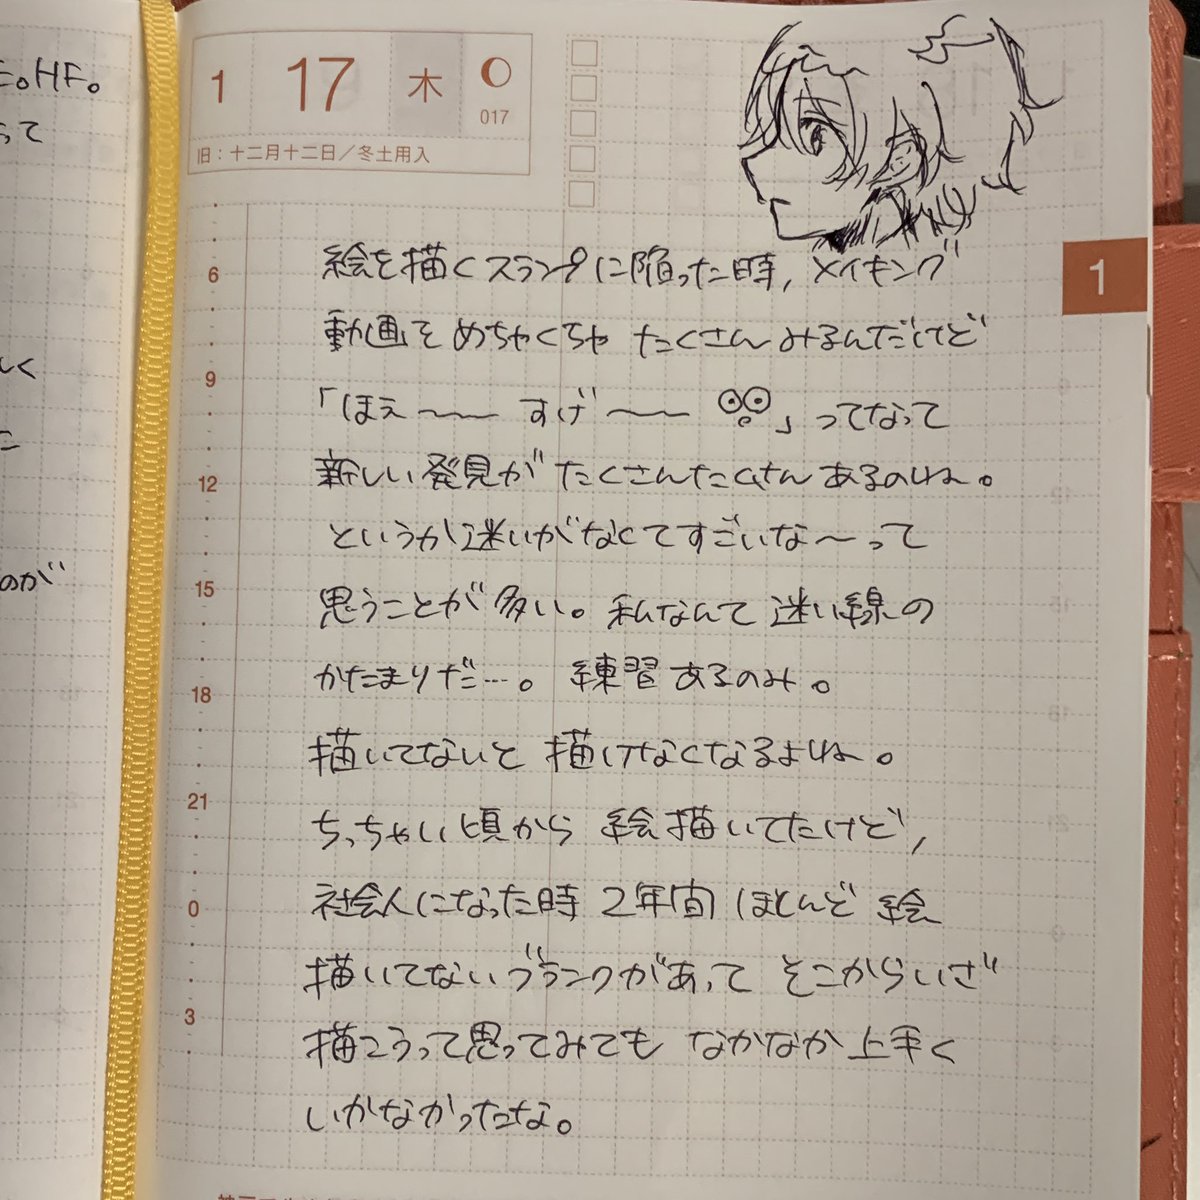 E。HF。
って
しく
のが
1 17 木
017
旧：十二月十二日／冬土用入
1
6
9
12
15
18
21
0
3
絵を描くスランプに陥った時, メイキング
動画をめちゃくちゃ たくさんみるんだけど
「ほえ〜〜 すげ〜〜 」ってなって
新しい発見が たくさんたくさんあるのよね。
というか迷いがなくてすごいな〜って
思うことが多い。私なんて迷い線の
かたまりだ…。 練習あるのみ。
描いてないと 描けなくなるよね。
ちっちゃい頃から 絵描いてたけど,
社会人になった時 2年間 ほとんど 絵
描いてないブランクがあって そこからいざ
描こうって思ってみても なかなか上手く
いかなかったな。